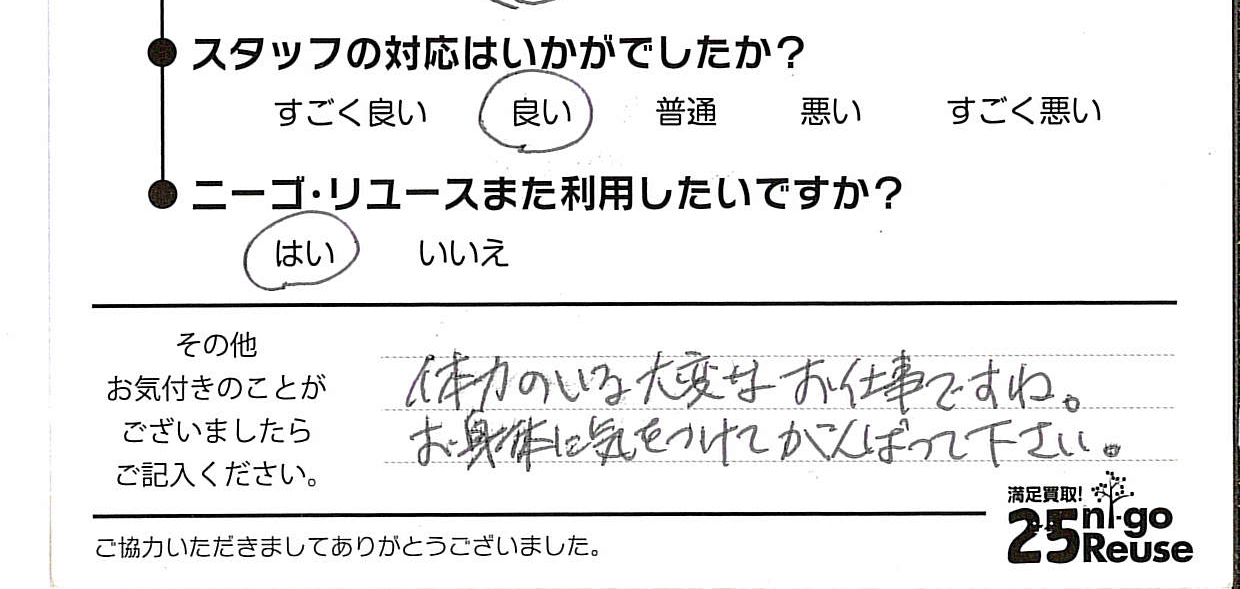 スタッフの対応はいかがでしたか？
すごく良い 良い 普通 悪い すごく悪い
ニーゴ・リユースまた利用したいですか？
はい いいえ
その他
お気付きのことが
ございましたら
ご記入ください。
体力のいる大変なお仕事ですね。
お身体に気をつけてがんばって下さい。
満足買取!
25 ni-go
Reuse
ご協力いただきましてありがとうございました。